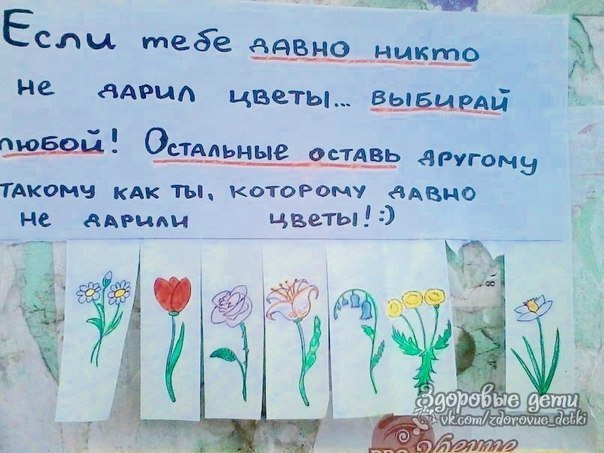 Если тебе давно никто
не дарил цветы... выбирай
любой! Остальные оставь другому
такому как ты, которому давно
не дарили цветы! :)
Здоровые дети
vk.com/zdorovue_detki